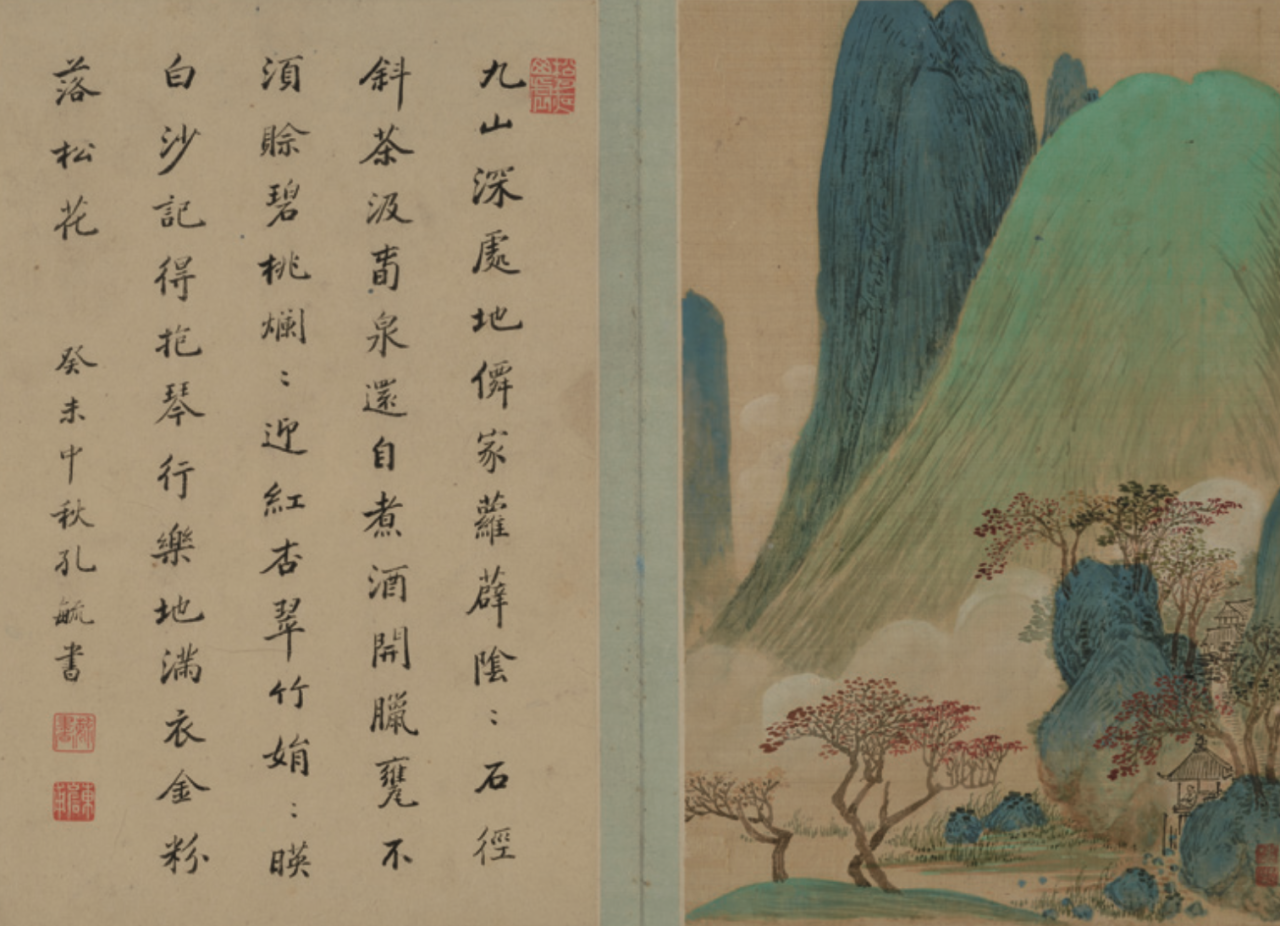 九山深處地僻家蘿薜陰〻石徑
斜茶汲嵓泉還自煮酒開臘甕不
須賒碧桃爛〻迎紅杏翠竹娟〻暎
白沙記得抱琴行樂地滿衣金粉
落松花
癸未中秋孔毓書